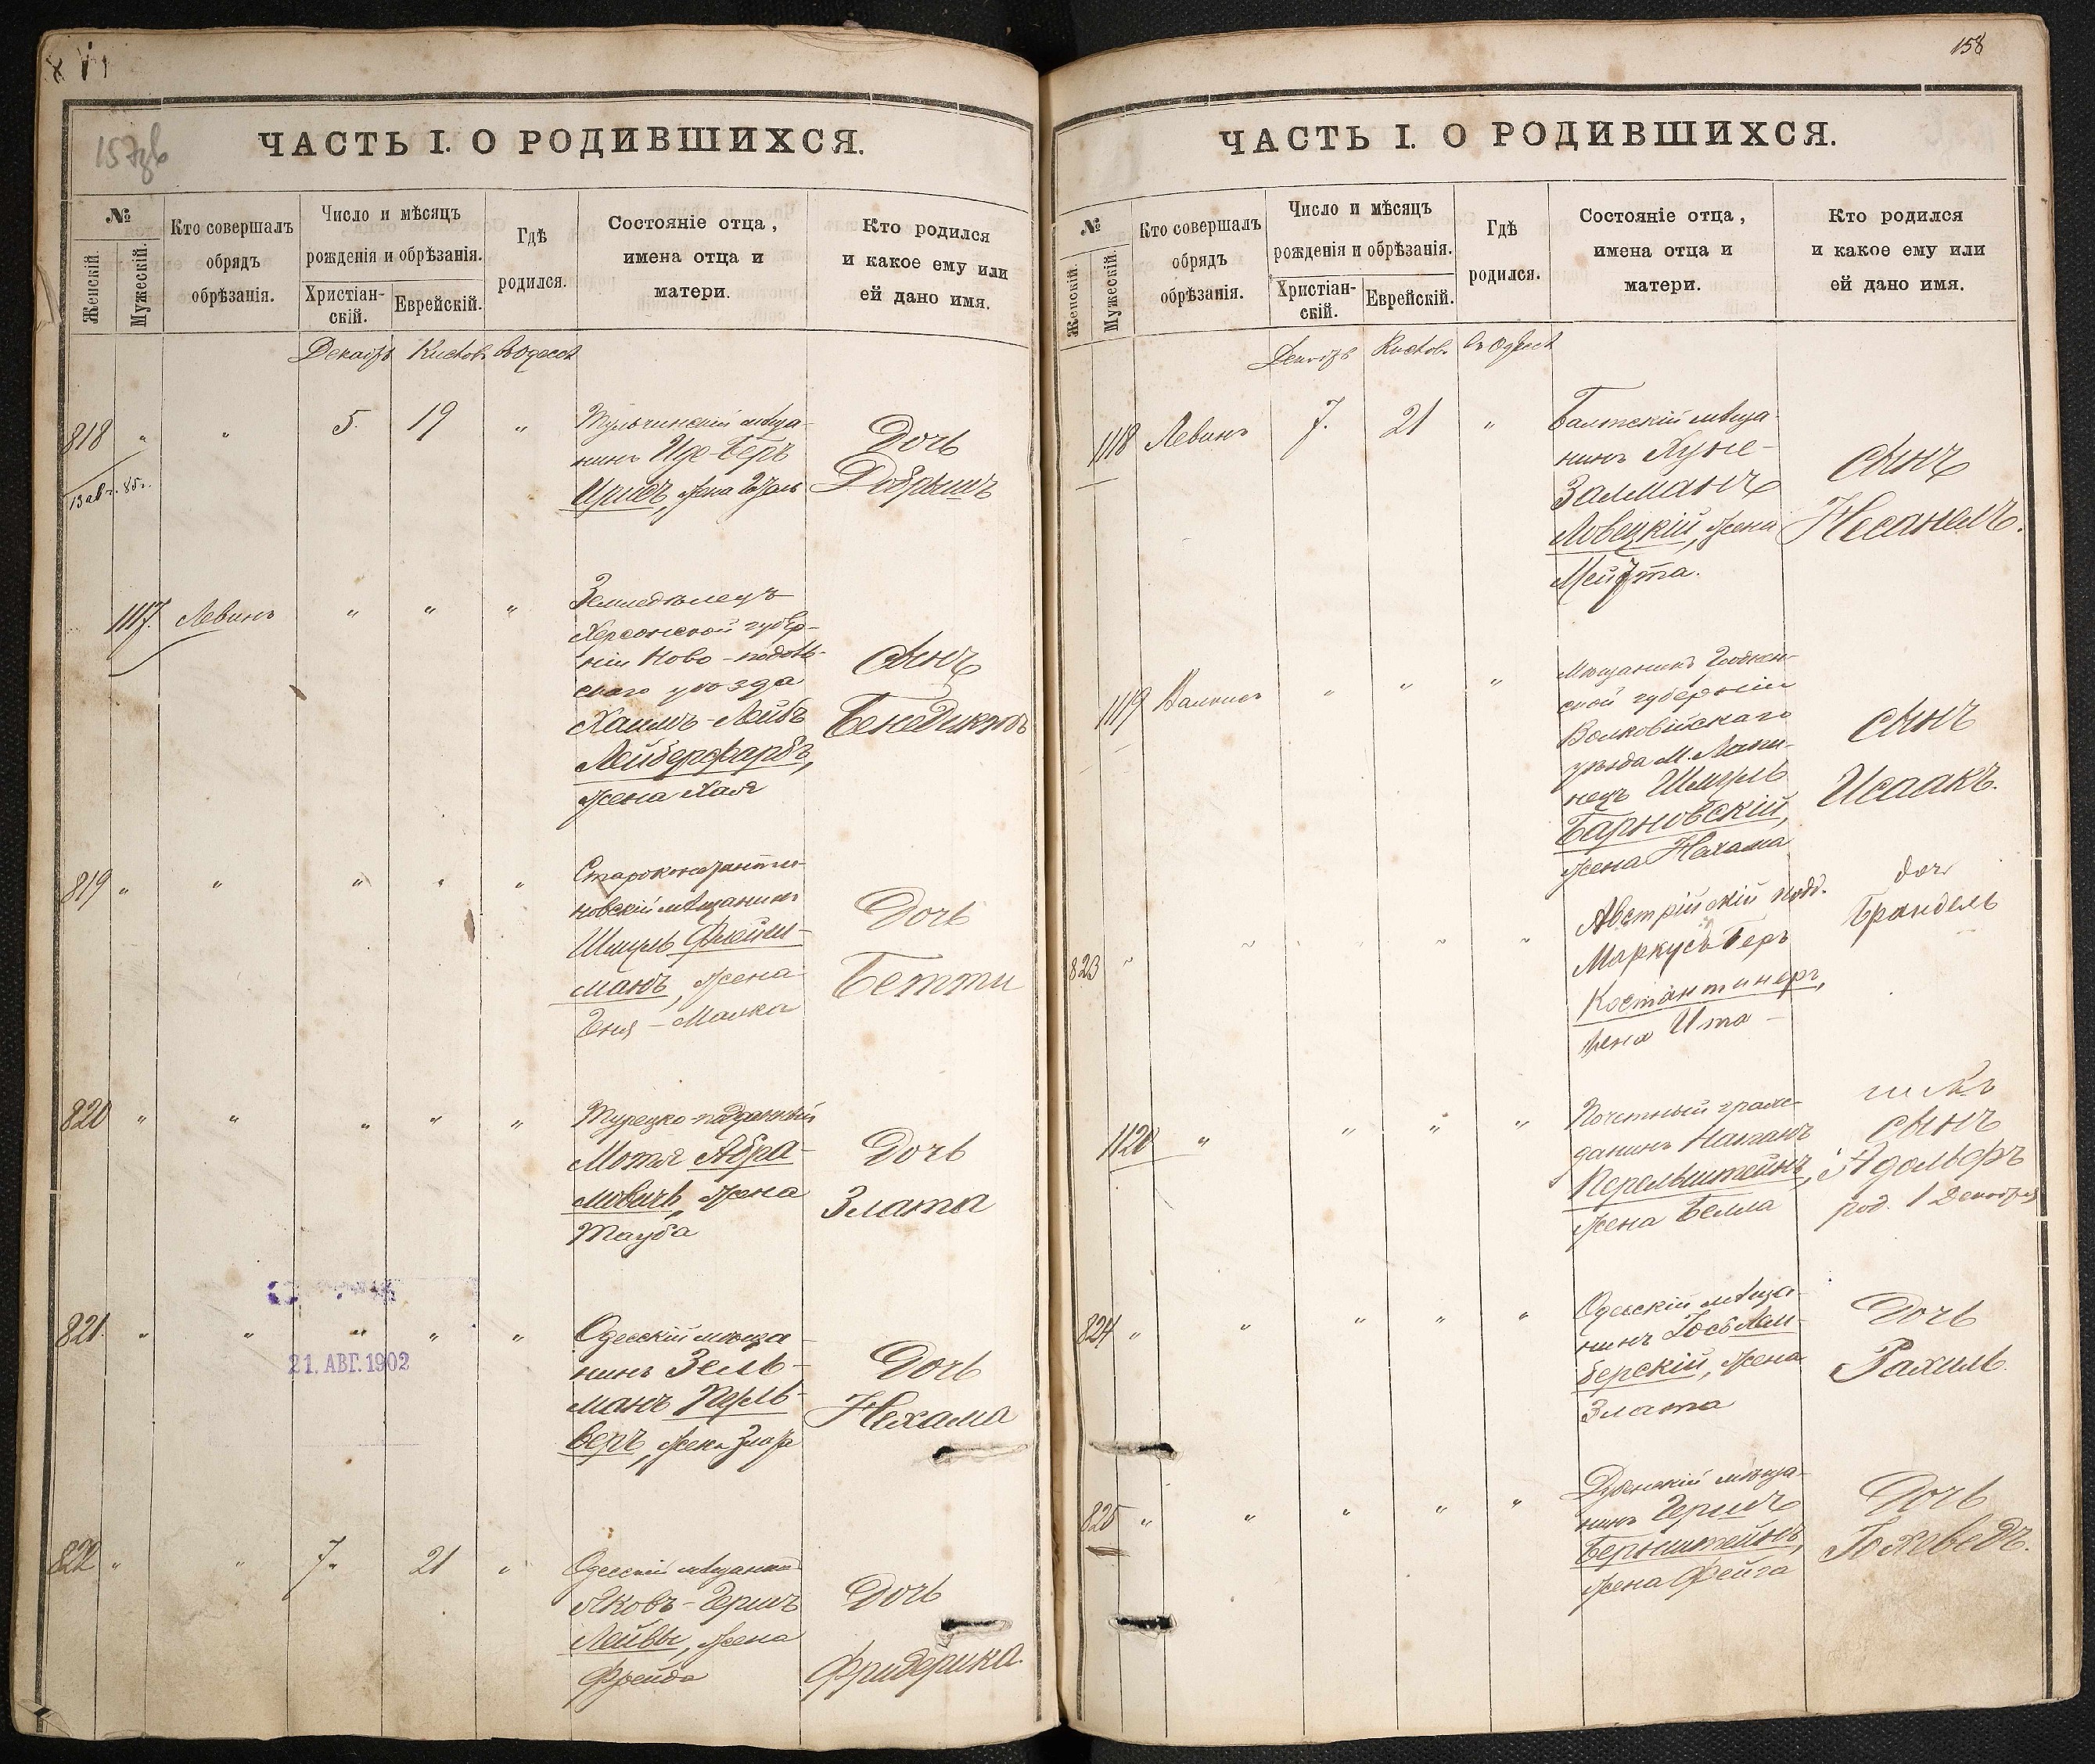 157об
ЧАСТЬ I. О РОДИВШИХСЯ.
№
Женскій.
Мужескій.
Кто совершалъ
обрядъ
обрѣзанія.
Число и мѣсяцъ
рожденія и обрѣзанія.
Христіан-
скій.
Еврейскій.
Гдѣ
родился.
Состояніе отца,
имена отца и
матери.
Кто родился
и какое ему или
ей дано имя.
Декабрь Кислов. въ Одессѣ
818 " " 5. 19 "
13 авг. 85 г.
Тульчинскій мѣща-
нинъ Иде-Беръ
жена
Дочь
Добрышъ
1117. Левинъ " " "
Земледѣлецъ
Херсонской губер-
ніи Ново-
скаго уѣзда
Хаимъ-Лейбъ
Лейберфарбъ,
жена Хая
Сынъ
Бенедиктъ
819 " " " " "
Староконстанти-
новскій мѣщанинъ
Шмуль Флейш-
манъ, жена
Геня-Малка
Дочь
Бетти
820 " " " " "
Турецко-подданный
Мотя Абра-
мовичъ, жена
Тауба
Дочь
Злата
821. " " " " "
21. АВГ. 1902
Одесскій мѣща-
нинъ Зель-
манъ Перль-
беръ, жена
Дочь
Нехама
822 " " 7. 21 "
Одесскій мѣщанинъ
Яковъ-Гершъ
Лейвы, жена
Фрейда
Дочь
Фридерика.
158
ЧАСТЬ I. О РОДИВШИХСЯ.
№
Женскій.
Мужескій.
Кто совершалъ
обрядъ
обрѣзанія.
Число и мѣсяцъ
рожденія и обрѣзанія.
Христіан-
скій.
Еврейскій.
Гдѣ
родился.
Состояніе отца,
имена отца и
матери.
Кто родился
и какое ему или
ей дано имя.
Декабрь Кислов. въ Одессѣ
1118 Левинъ 7. 21 "
Балтскій мѣща-
нинъ Хуне-
Залманъ
Ловецкій, жена
Сынъ
Несанелъ.
1119 " " "
Мѣщанинъ Гроднен-
ской губерніи
Волковійскаго
уѣзда М.
Шмуль
Барновскій,
жена Нехама
Сынъ
Исаакъ.
823 " " " " "
Австрійскій подд.
Маркусъ-Беръ
Костантинеръ,
жена Ита
дочь
Брандель
1120 " " " "
Почетный граж-
данинъ Натанъ
Перельштейнъ,
жена Белла
сынъ
Адольфъ
род. 1 Декабря
824 " " " " "
Одесскій мѣща-
нинъ Іосъ Лем-
берскій, жена
Злата
Дочь
Рахиль.
825 " " " " "
Дубенскій мѣща-
нинъ Гершъ
Бернштейнъ,
жена Фейга
Дочь
Іохеведъ.